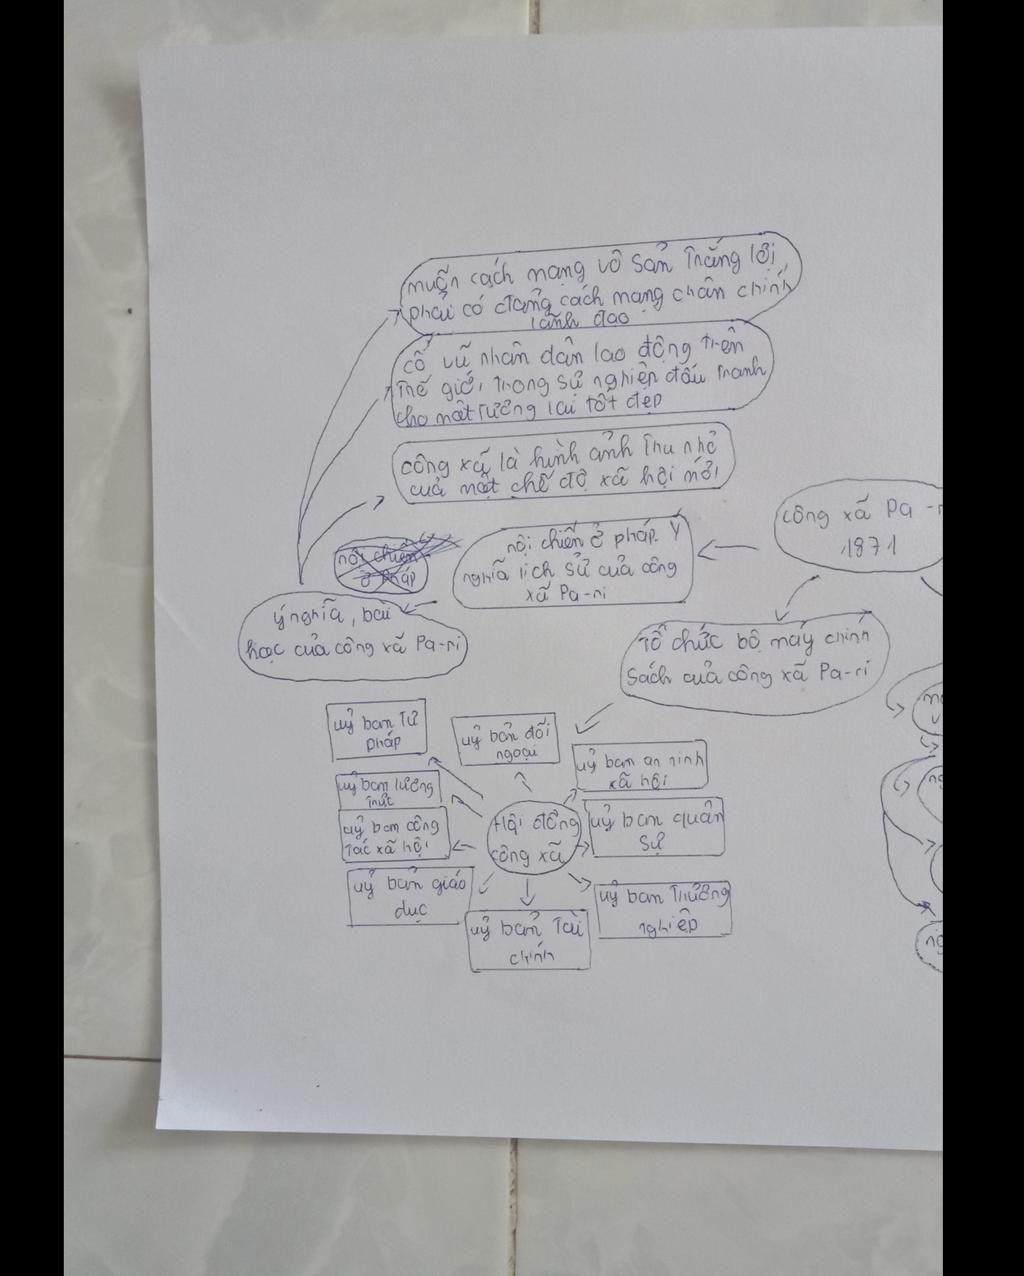 muốn cách mạng vô sản Thắng lợi
phải có đảng cách mạng chân chính
lãnh đạo
cổ vũ nhân dân lao động trên
Thế giới trong sự nghiệp đấu Tranh
cho một tương lai tốt đẹp
công xã là hình ảnh Thu nhỏ
của một chế độ xã hội mới
công xã Pa -
1871
nội chiến ở pháp. Ý
nghĩa lịch sử của công
xã Pa-ri
nội chiến
ở pháp
ý nghĩa, bài
học của công xã Pa-ri
Tổ chức bộ máy chính
sách của công xã Pa-ri
uỷ ban Tư
pháp
uỷ ban đối
ngoại
uỷ ban an ninh
xã hội
uỷ ban lương
Thực
uỷ ban công
Tác xã hội
Hội đồng
công xã
uỷ ban quân
sự
uỷ ban giáo
dục
uỷ ban Tài
chính
uỷ ban Thương
nghiệp